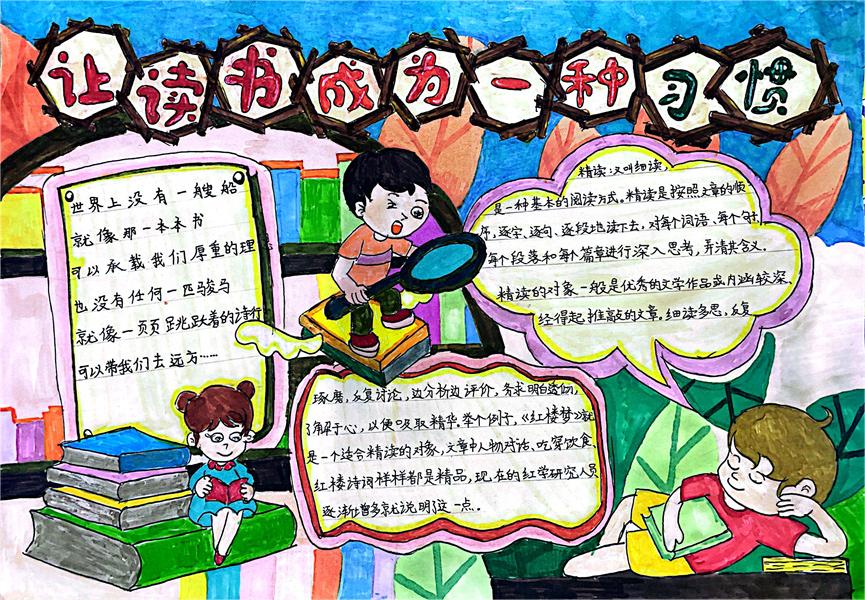 让读书成为一种习惯
世界上没有一艘船
就像那一本本书
可以承载我们厚重的理
也没有任何一匹骏马
就像一页页跳跃着的诗行
可以带我们去远方……
精读:又叫细读,
是一种基本的阅读方式。精读是按照文章的顺
序,逐字、逐句、逐段地读下去,对每个词语、每个句
每个段落和每个篇章进行深入思考,弄清其含义.
精读的对象一般是优秀的文学作品或内涵较深、
经得起推敲的文章。细读多思,反复
琢磨,反复讨论,边分析边评价,务求明白透彻,
了解于心,以便吸取精华。举个例子,《红楼梦》就
是一个适合精读的对象,文章中人物对话、吃穿饮食、
红楼诗词样样都是精品,现在的红学研究人员
逐渐增多就说明了这一点。